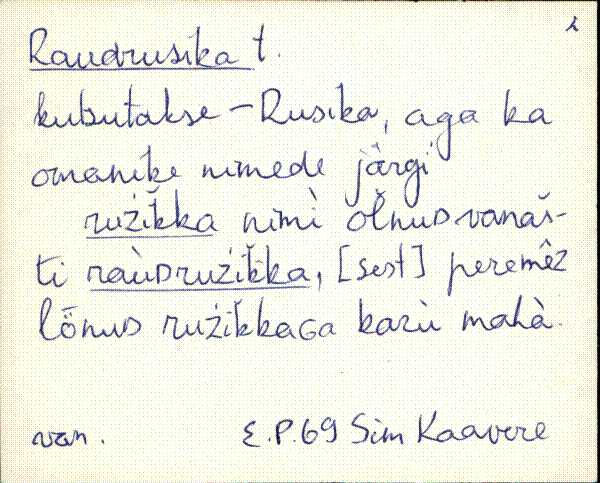 2
Raudrusika t.
kubutakse – Rusika, aga ka
omanike nimede järgi
ružikka nimì ol̆nuᴅ vanaš-
ti ràuᴅružikka, [sest] peremêz
lö̀nuᴅ ružikkaGa karù mahà.
van. E.P.69 Sim Kaavere